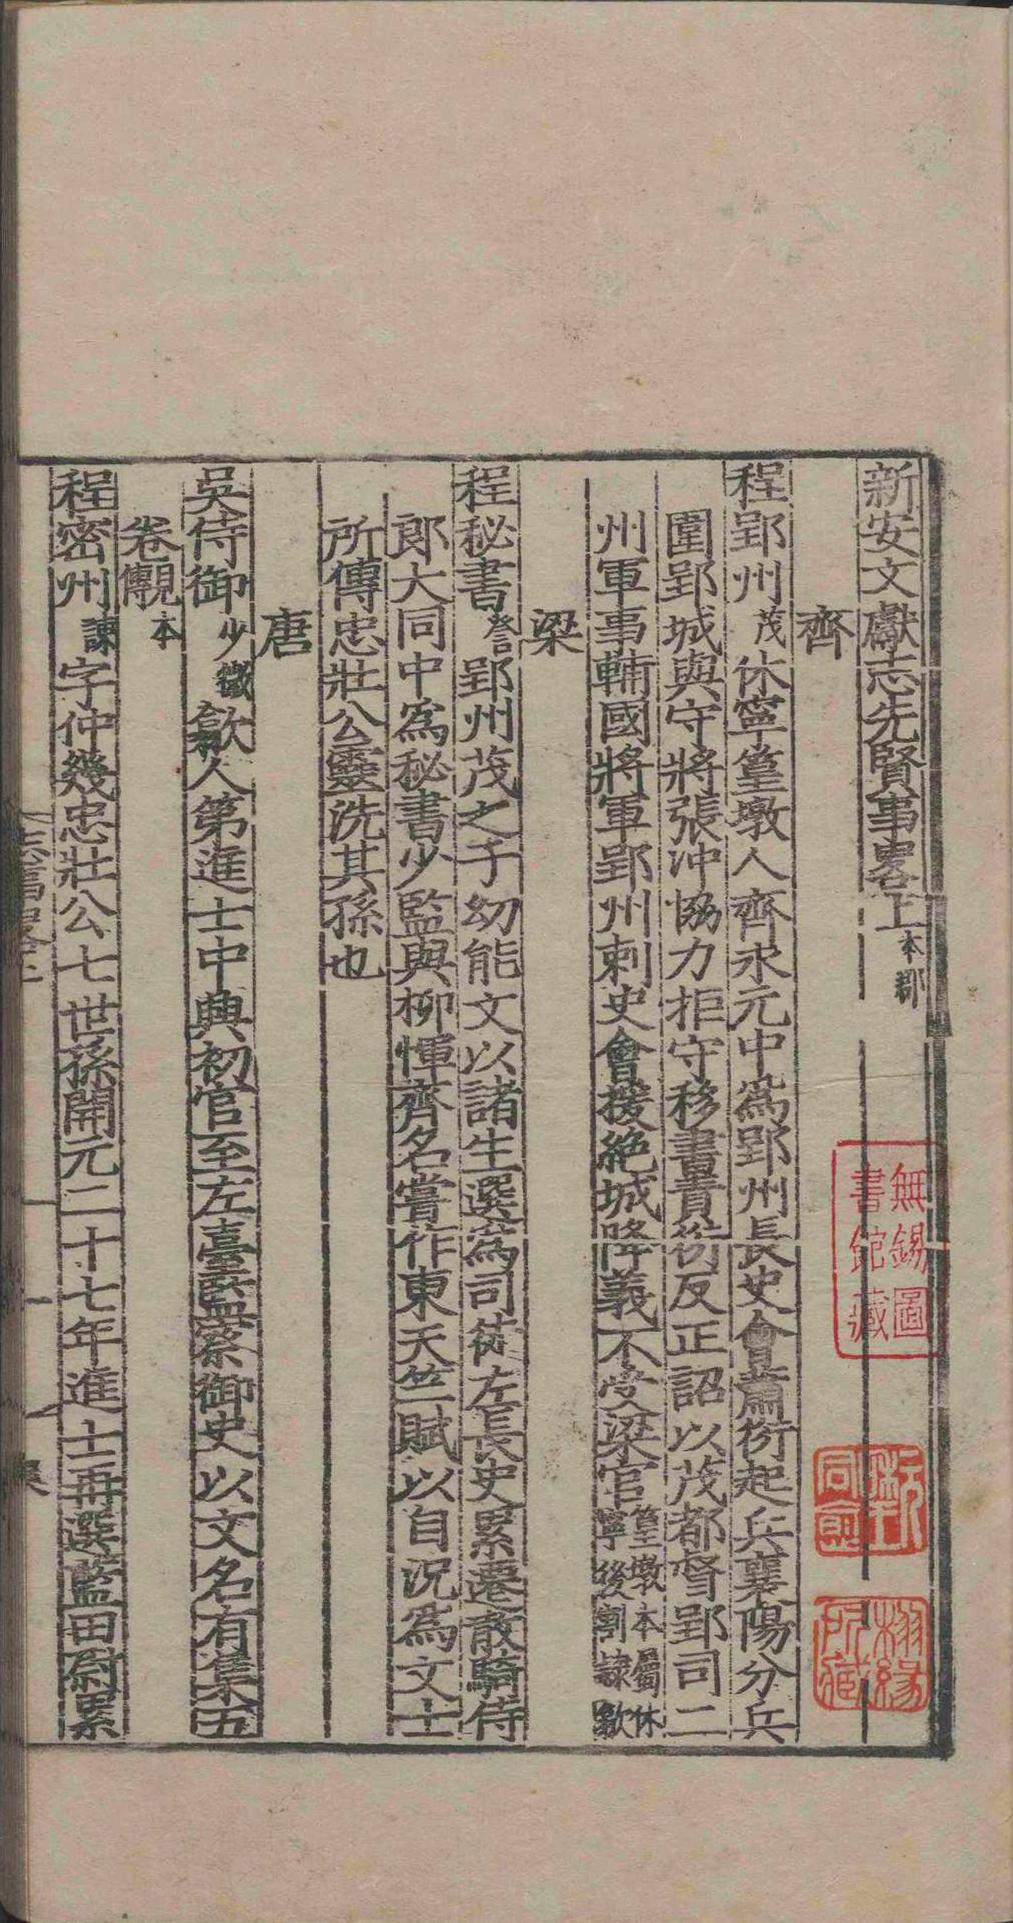 新安文獻志先賢事畧上本郡
齊
程郢州茂休寧篁墩人齊永元中為郢州長史會蕭衍起兵襄陽分兵
圍郢城與守將張沖恊力拒守移書責衍反正詔以茂都督郢司二
州軍事輔國將軍郢州刺史會援絶城降義不受梁官篁墩本屬休寧後割隷歙
梁
程秘書詧郢州茂之子幼能文以諸生選為司徒左長史累遷散騎侍
郎大同中為秘書少監與柳惲齊名嘗作東天竺賦以自況為文士
所傳忠壯公靈洗其孫也
唐
吳侍御少微歙人第進士中興初官至左臺監察御史以文名有集五
卷本傳見
程密州諫字仲幾忠壯公七世孫開元二十七年進士再選藍田尉累
無錫圖
書館藏
所藏